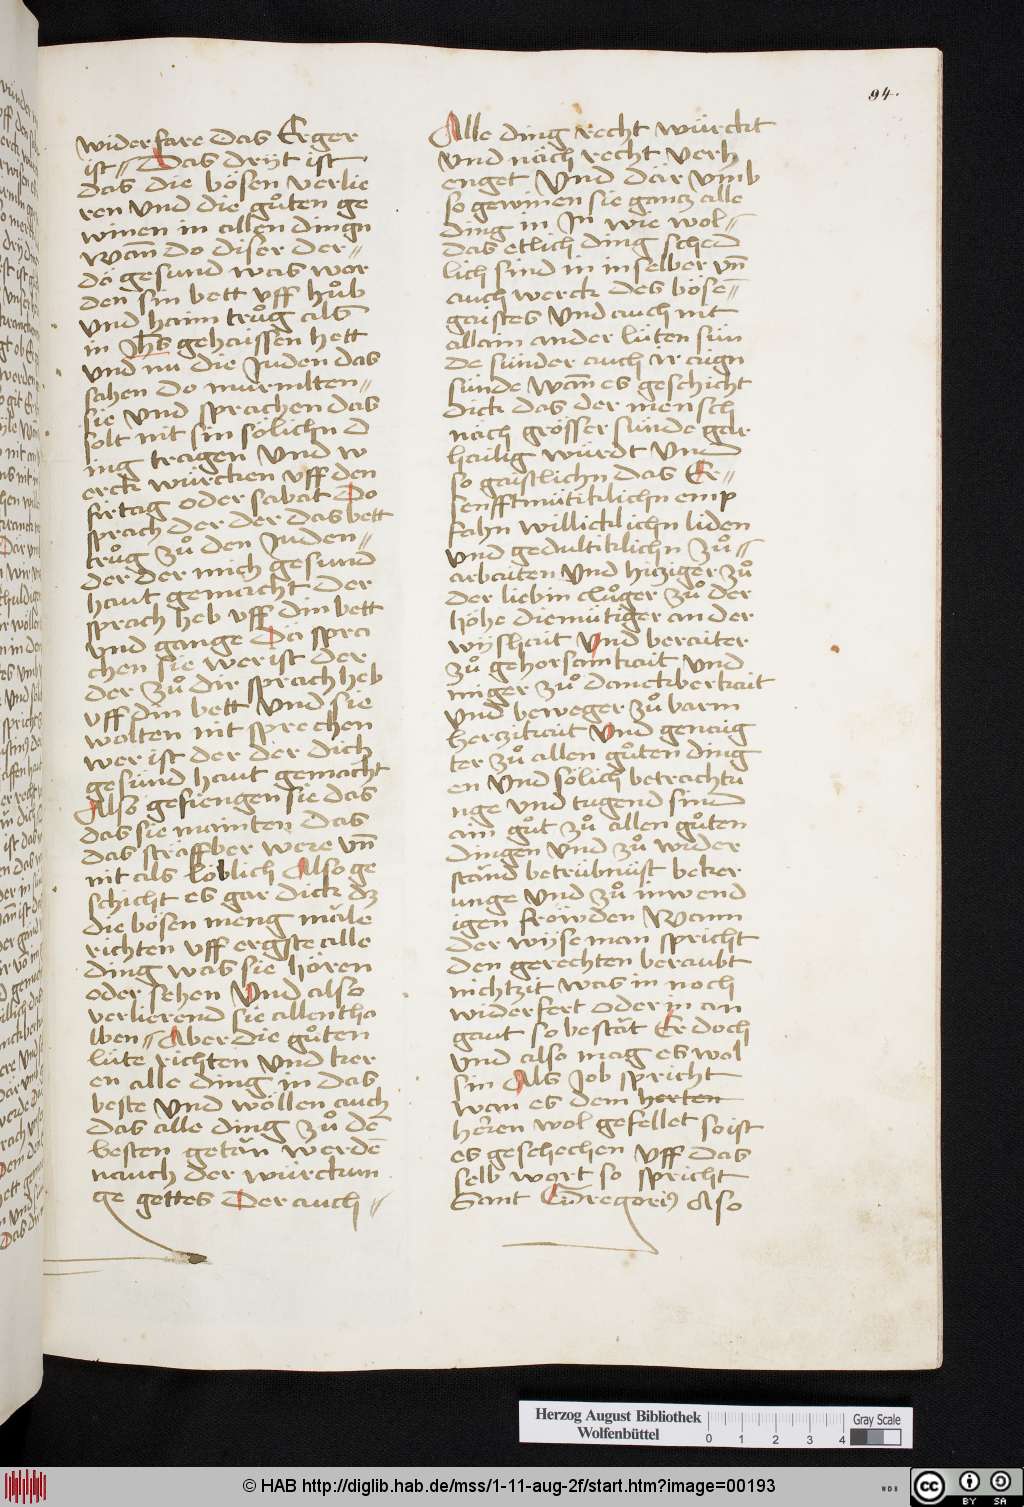 94.
wider fare das Erger
ist // Das drÿt ist
das die bösen verlie
ren vnd die gůten ge
winen in allen dingn
Wan̄ do diser der //
do gesund was wor
den sin bett vff hůb
vnd haim trůg als
in Jhs gehaissen hett
vnd nu die Juden das
sahen do murmlten //
sie vnd sprachen das
solt nit sin sölichn d
ing tragen vnd w
erck würcken vff den
firtag oder sabat Do
sprach der der das bett
trůg zů den Juden //
der der mich gesund
haut gemacht der
sprach heb vff din bett
vnd gange Do spra
chen sie wer ist der
der zů dir sprach heb
vff din bett vnd sie
wolten nit sprechen
wer ist der der dich
gesund haut gemacht
Also gefiengen sie das
das sie mainten das
das straffber were vn̄
nit als loblich Also ge
schicht es gar dick dz
die bösen meng mäle
richten vff ergste alle
ding was sie hören
oder sehen Vnd also
verlierend sie allentha
lben // Aber die gůten
lüte richten vnd ker
en alle ding in das
beste vnd wöllen auch
das alle ding zů dē
besten getān werdē
nauch der würckun
ge gottes Der auch //
Alle ding recht würckt
vnd näch recht verh
enget Vnd där vmb
so gewinen sie gantz alle
ding in Jn wie wol //
das etlich ding sched
lich sind in in selber vn̄
auch werck des bösē //
gaistes Vnd auch nit
allain ander lüten sün
de sünder auch ir augn
sünde Wan̄ es geschicht
dick das der mensch
näch grösser sünde gar
hailig würdt Vnd
so gaistlichn das Er //
senfftmütiklichn emp
fahn willicklichn liden
vnd gedultiklichn zů //
arbaiten Vnd hitziger zů
der lieb in clůger zů der
höhe diemütiger an der
wÿshait Vnd beraiter
zů gehorsamkait vnd
iniger zů danckberkait
vnd beweger zů barm
hertzikait Vnd genaig
ter zů allen gůten ding
en Vnd sölich betrachtu
nge vnd tugend sind
ain gůt zů allen gůten
dingen vnd zů wider
ständ betrübnüst beker
unge vnd zů inwend
igen fröwden Wann
der wÿse man spricht
den gerechten beraubt
nichtzit was in noch
widerfert oder in an
gaut so bestät Er doch
vnd also mag es wol
sin Als Job spricht
wan es dem herten
herren wol gefellet so ist
es geschechen vff das
selb wort so spricht
Sant Gregoriꝰ Also
Herzog August Bibliothek
Wolfenbüttel
0 1 2 3 4
Gray Scale
© HAB http://diglib.hab.de/mss/1-11-aug-2f/start.htm?image=00193
WDB
CC BY SA